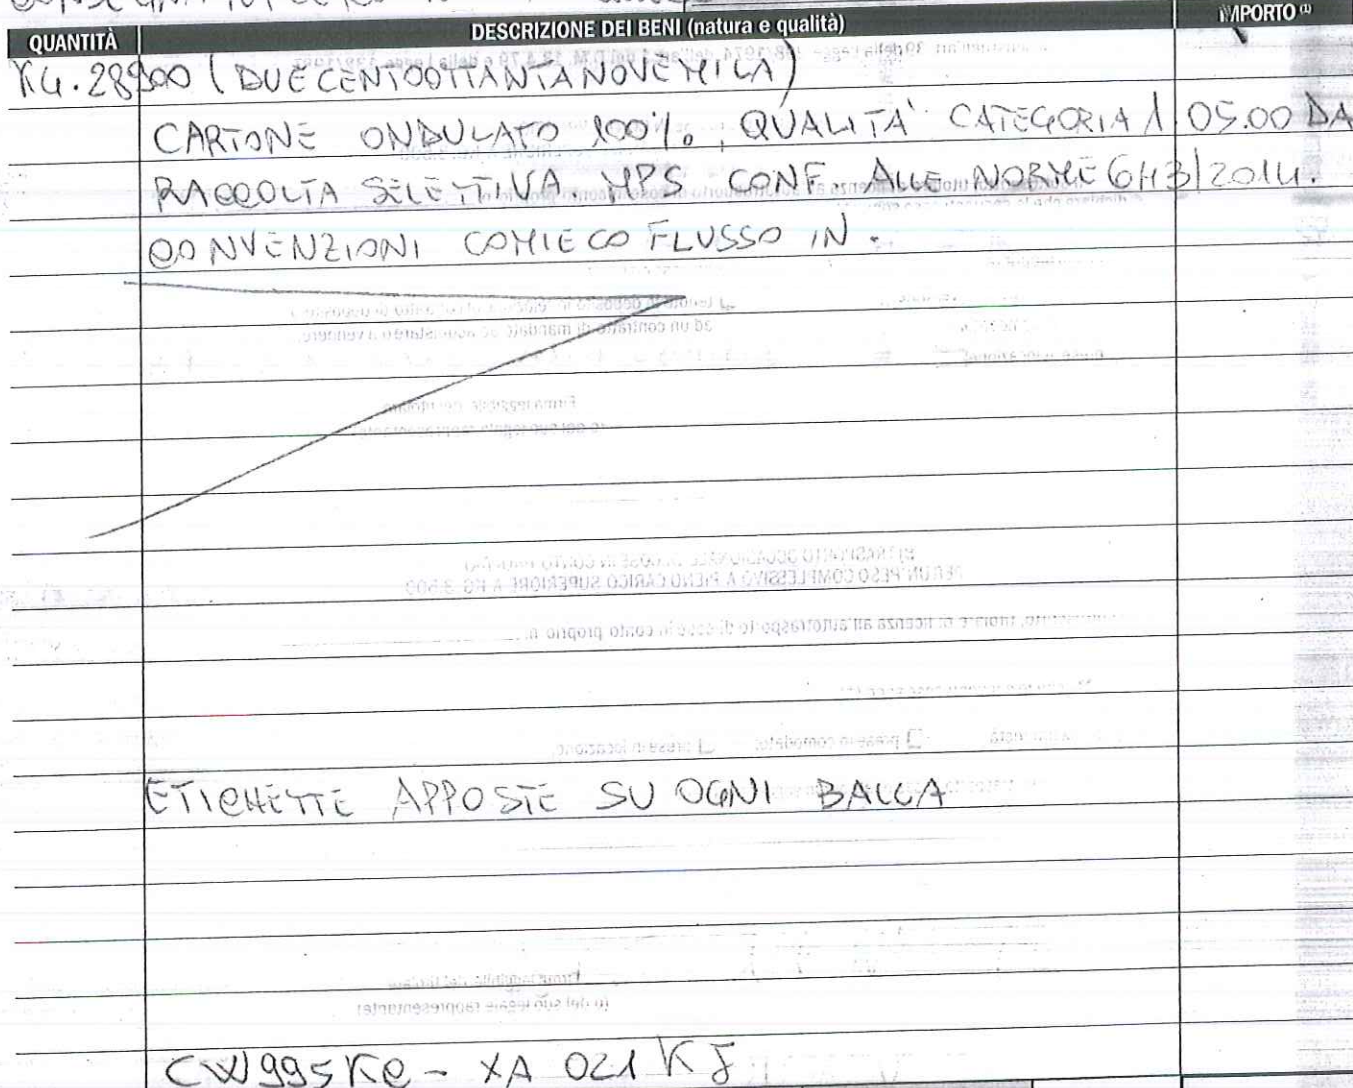 QUANTITÀ DESCRIZIONE DEI BENI (natura e qualità) IMPORTO (1)
KG. 28900 (DUECENTOOTTANTANOVEMILA)
CARTONE ONDULATO 100%, QUALITA' CATEGORIA 1 05.00 DA
RACCOLTA SELETTIVA MPS CONF. ALLE NORME 643/2014.
CONVENZIONI COMIECO FLUSSO IN.
ETICHETTE APPOSTE SU OGNI BALLA
CW995KC - XA 021 KJ